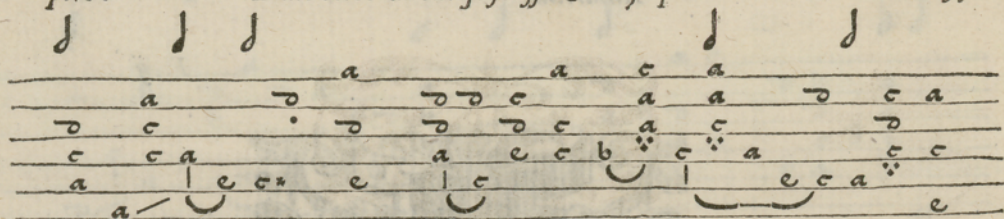 a a c a
a d d d c a a d c a
d c d d d c a c d
c c a a e c b c a c c
a e c e c e c a
a e